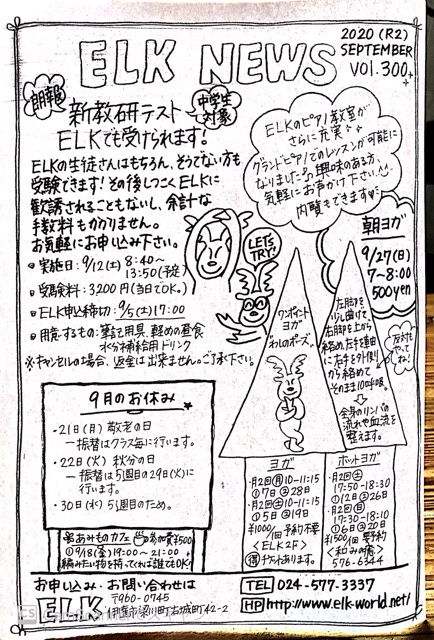 2020 (R2)
SEPTEMBER
VOL.300
ELK NEWS
朗報
新教研テスト
中学生対象
ELKでも受けられます!
ELKの生徒さんはもちろん、そうでない方も
受験できます!その後しつこくELKに
歓誘されることもないし、余計な
手数料もかかりません。
お気軽にお申し込み下さい。
実施日:9/12(土) 8:40~
13:50(予定)
受験料:3,200円(当日でOK。)
ELK申込締切:9/5(土)17:00
用意するもの:筆記用具、軽めの昼食
水分補給用ドリンク
※キャンセルの場合、返金は出来ません。ご了承下さい。
ELKのピアノ教室が
さらに充実
グランドピアノでのレッスンが可能に
なりました♫興味のある方、
気軽にお声かけ下さい
内覧もできます
朝ヨガ
9/27(日)
7~8:00
500yen
LET'S
TRY!
ワンポイント
ヨガ
わしのポーズ
左膝を
少し曲げて
右脚を上から
絡め、左手を垂直
に右手を外側
から絡めて
そのまま10呼吸
全身のリンパの
流れや血流を
整えます。
反対も
やってね!
9月のお休み
・21日(月) 敬老の日
ー振替はクラス毎に行います。
・22日(火) 秋分の日
ー振替は5週目の29日(火)に
行います。
・30日(水) 5週目のため。
あみものカフェ 参加費¥500
①9/18(金)19:00~21:00
編みたい物を持ってくれば誰でもOK!
ヨガ
・月2回(月)10-11:15
①7日②28日
・月2回(土)10-11:15
①5日②19日
¥1000/1回予約不要
<ELK2F>
得チケットあります。
ホットヨガ
・月2回(土)
17:50-18:30
①12日②26日
・月2回(日)
17:30-18:10
①6日②20日
¥1500/1回 要予約
<和みの癒>
576-6344
お申し込み・お問い合わせは
〒960-0745
ELK 伊達市梁川町右城町42-2
TEL 024-577-3337
HP http://www.elk-world.net/